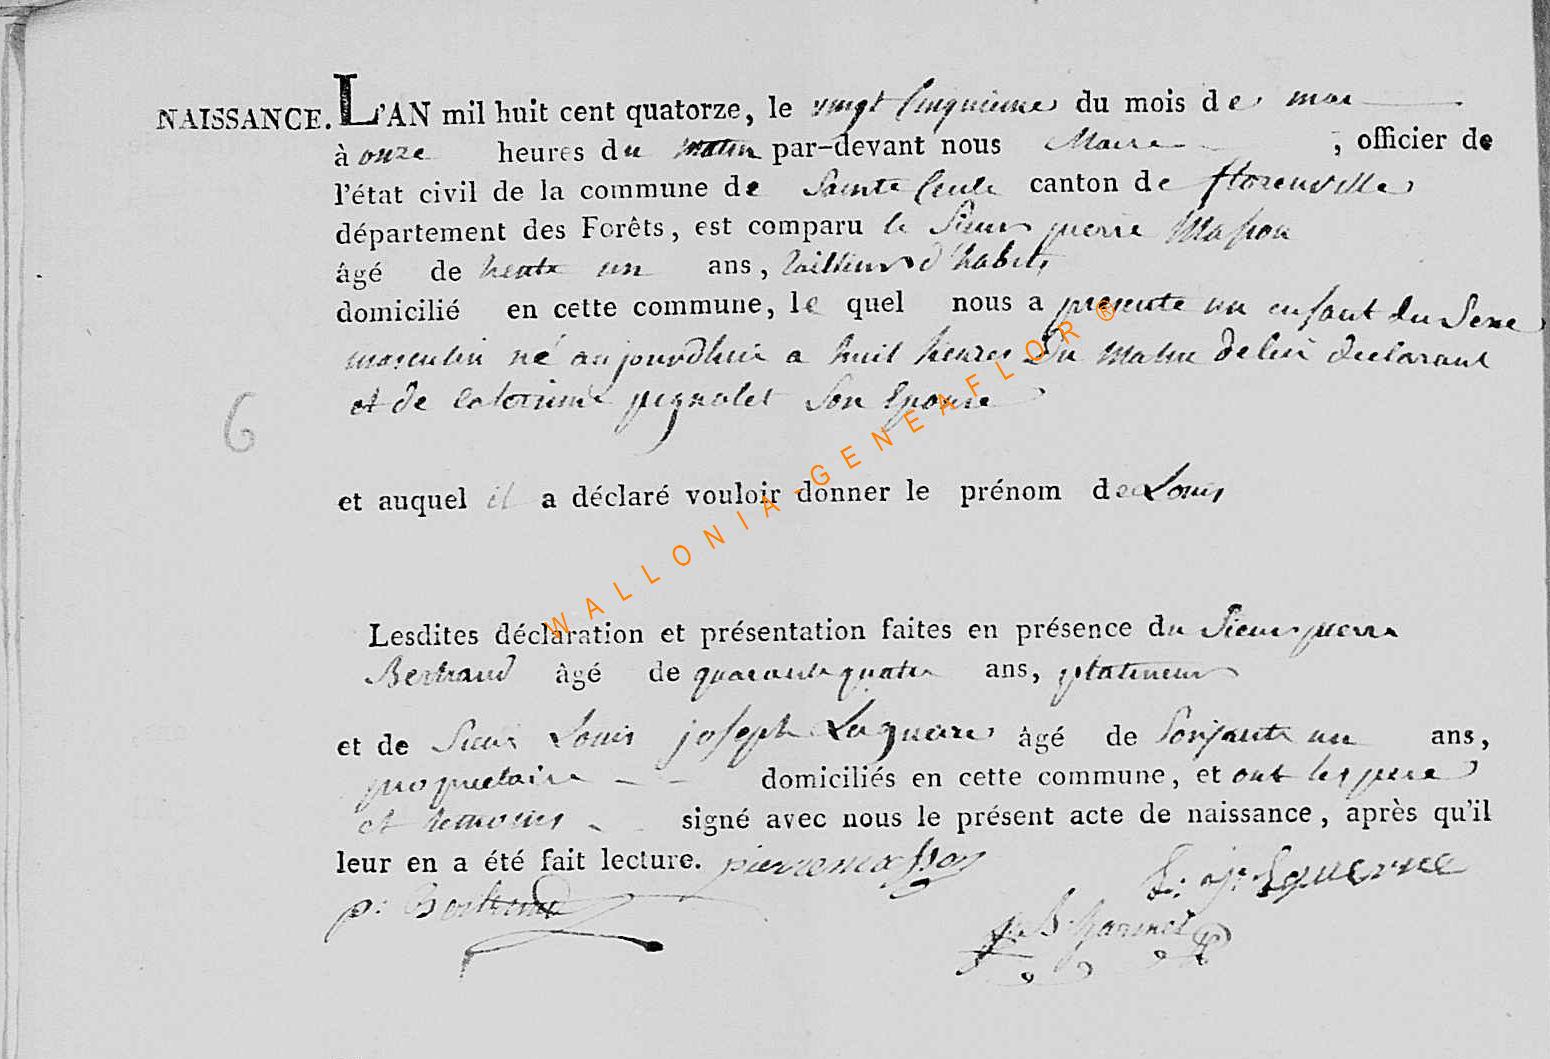 NAISSANCE. L'AN mil huit cent quatorze, le vingt cinquieme du mois de mai
à onze heures du matin par-devant nous Maire, officier de
l'état civil de la commune de Sainte Cecile canton de florenville
département des Forêts, est comparu le Sieur pierre Masson
âgé de trente un ans, tailleur d'habits
domicilié en cette commune, le quel nous a presente un enfant du Sexe
masculin né aujourdhuit a huit heures Du Matin de lui declarant
et de caterinne pignolet Son Epouse
6
et auquel il a déclaré vouloir donner le prénom de Louis
WALLONIA-GENEAFLOR®
Lesdites déclaration et présentation faites en présence du Sieur pierre
Bertrand âgé de quarante quatre ans, platineur
et de Sieur Louis joseph Laguerre âgé de Soixante un ans,
proprietaire domiciliés en cette commune, et ont les pere
et temoins signé avec nous le présent acte de naissance, après qu'il
leur en a été fait lecture. pierre masson
p: Bertrand